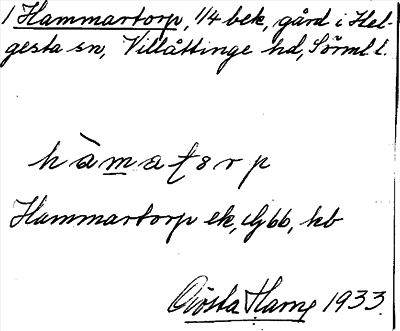 1 Hammartorp, 1/4 bek, gård i Hel-
gesta sn, Villåttinge hd, Sörml. l.
hàmatorp
Hammartorp ek, Gbb, kb
Gösta Harne 1933.